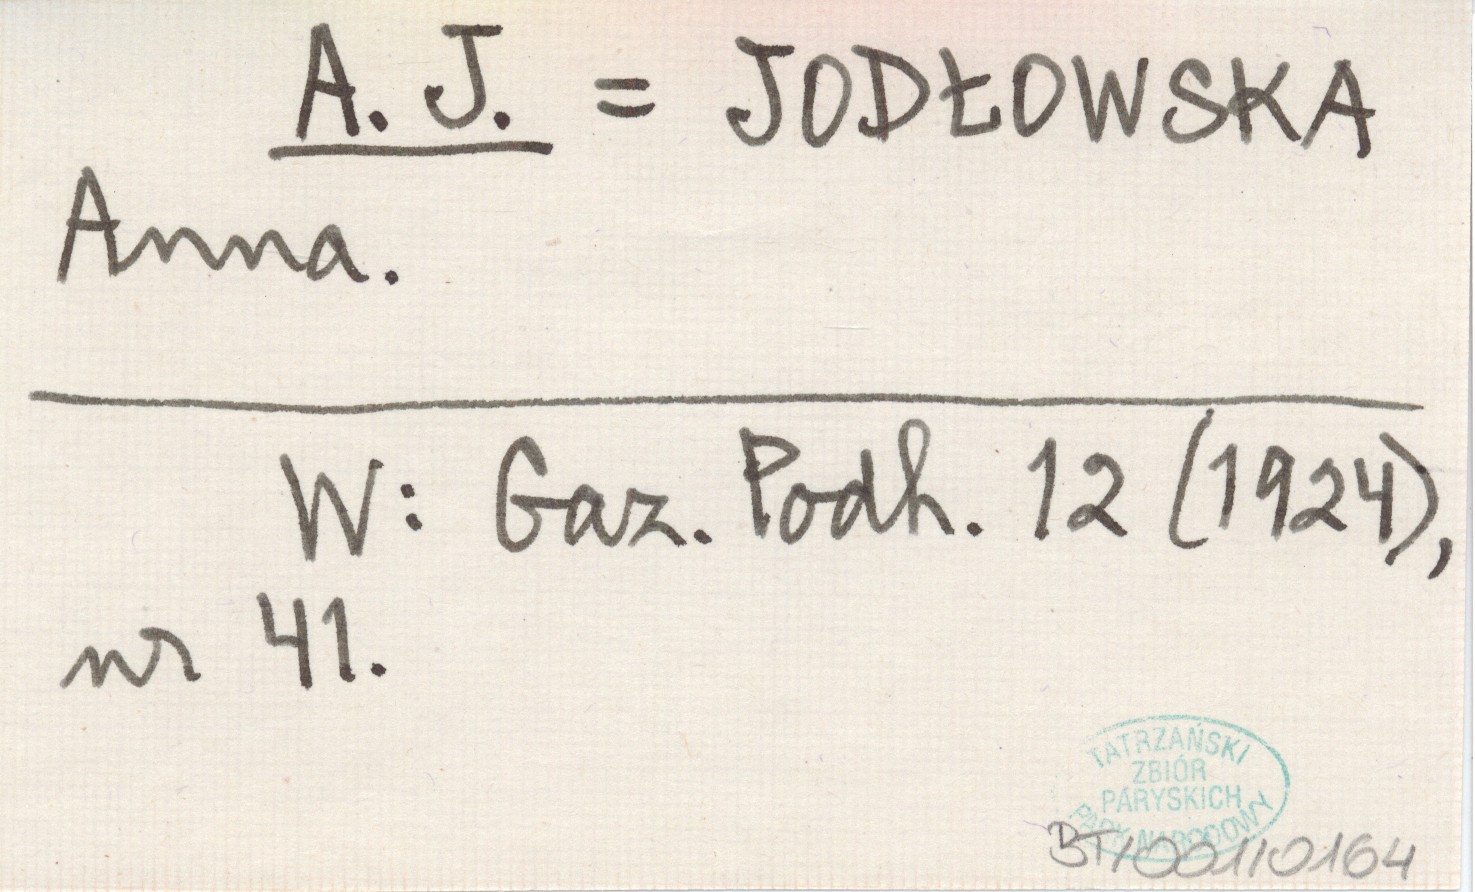 A. J. = JODŁOWSKA
Anna.
W: Gaz. Podh. 12 (1924),
nr 41.
TATRZAŃSKI
ZBIÓR
PARYSKICH
PARK NARODOWY
BT/001/0164